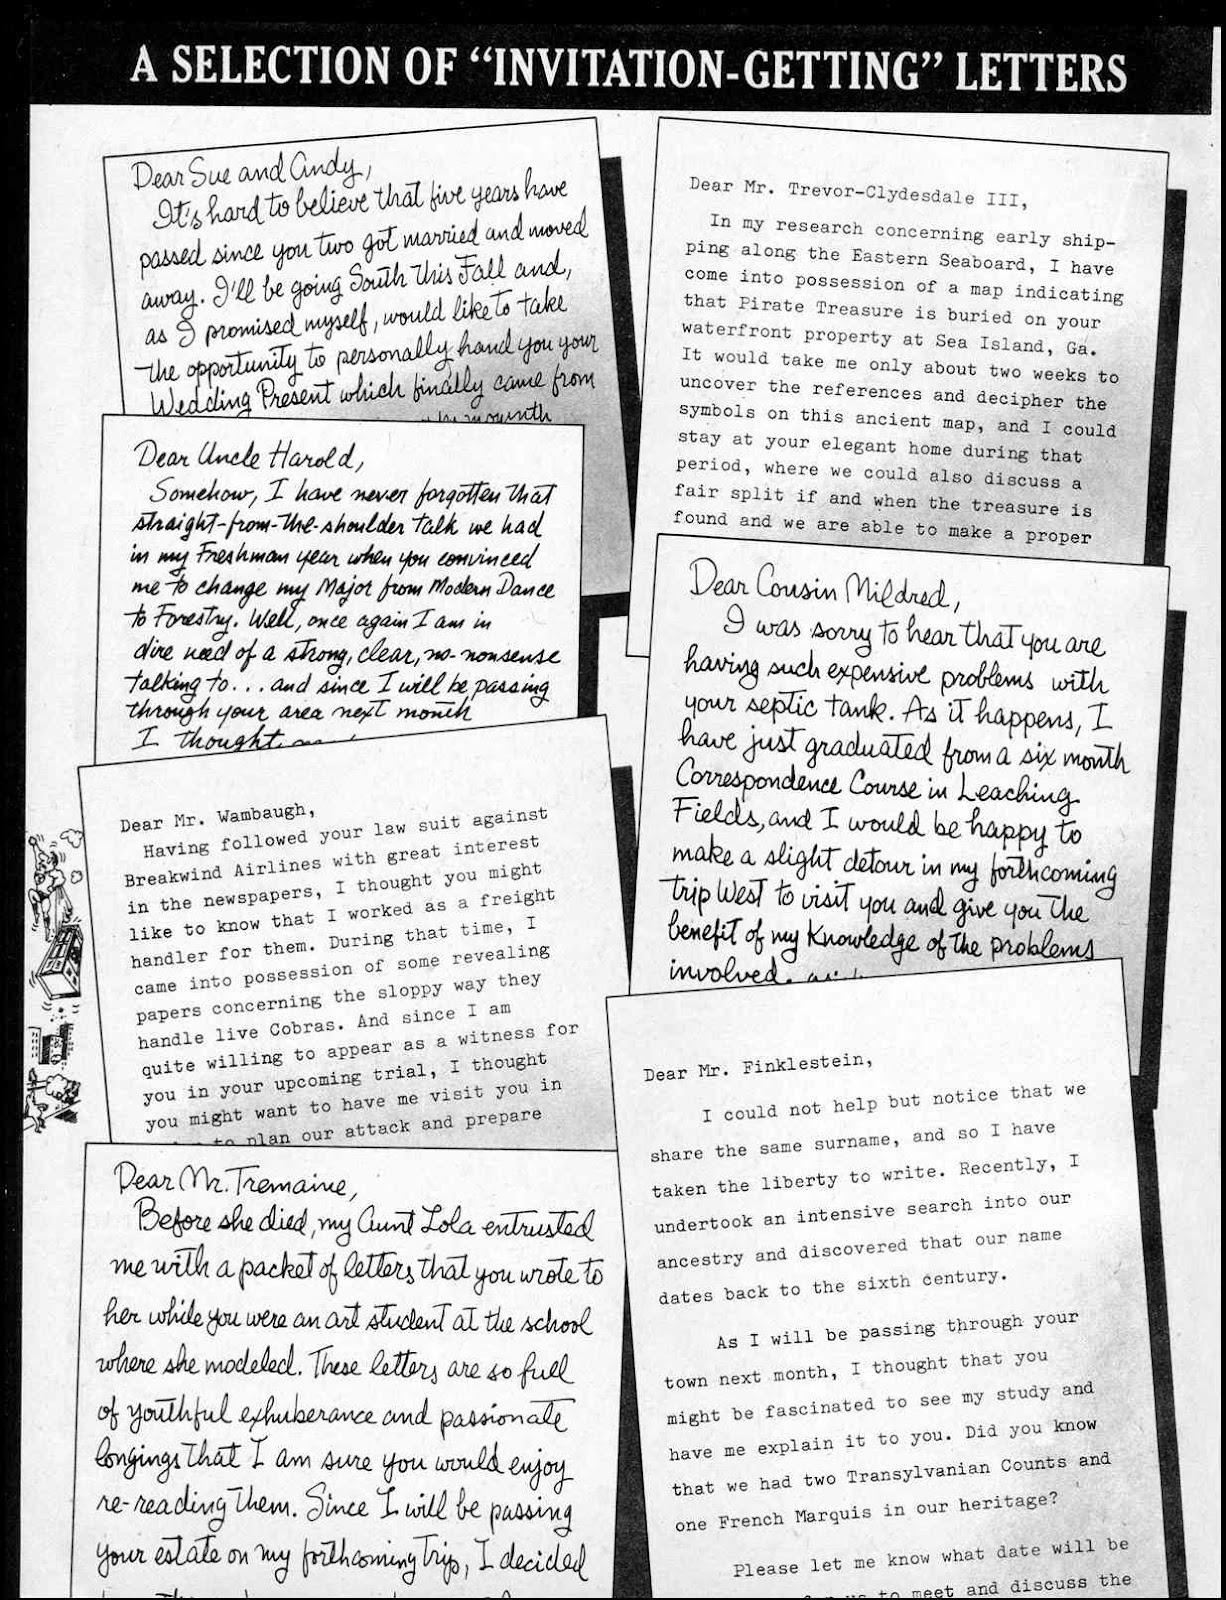 A SELECTION OF “INVITATION-GETTING” LETTERS
Dear Sue and Andy,
It's hard to believe that five years have
passed since you two got married and moved
away. I'll be going South this Fall and,
as I promised myself, would like to take
the opportunity to personally hand you your
Wedding Present which finally came from
Dear Uncle Harold,
Somehow, I have never forgotten that
straight-from-the-shoulder talk we had
in my Freshman year when you convinced
me to change my Major from Modern Dance
to Forestry. Well, once again I am in
dire need of a strong, clear, no-nonsense
talking to... and since I will be passing
through your area next month
I thought
Dear Mr. Wambaugh,
Having followed your law suit against
Breakwind Airlines with great interest
in the newspapers, I thought you might
like to know that I worked as a freight
handler for them. During that time, I
came into possession of some revealing
papers concerning the sloppy way they
handle live Cobras. And since I am
quite willing to appear as a witness for
you in your upcoming trial, I thought
you might want to have me visit you in
to plan our attack and prepare
Dear Mr. Tremaine,
Before she died, my Aunt Lola entrusted
me with a packet of letters that you wrote to
her while you were an art student at the school
where she modeled. These letters are so full
of youthful exhuberance and passionate
longings that I am sure you would enjoy
re-reading them. Since I will be passing
your estate on my forthcoming trip, I decided
Dear Mr. Trevor-Clydesdale III,
In my research concerning early ship-
ping along the Eastern Seaboard, I have
come into possession of a map indicating
that Pirate Treasure is buried on your
waterfront property at Sea Island, Ga.
It would take me only about two weeks to
uncover the references and decipher the
symbols on this ancient map, and I could
stay at your elegant home during that
period, where we could also discuss a
fair split if and when the treasure is
found and we are able to make a proper
Dear Cousin Mildred,
I was sorry to hear that you are
having such expensive problems with
your septic tank. As it happens, I
have just graduated from a six month
Correspondence Course in Leaching
Fields, and I would be happy to
make a slight detour in my forthcoming
trip West to visit you and give you the
benefit of my Knowledge of the problems
involved.
Dear Mr. Finklestein,
I could not help but notice that we
share the same surname, and so I have
taken the liberty to write. Recently, I
undertook an intensive search into our
ancestry and discovered that our name
dates back to the sixth century.
As I will be passing through your
town next month, I thought that you
might be fascinated to see my study and
have me explain it to you. Did you know
that we had two Transylvanian Counts and
one French Marquis in our heritage?
Please let me know what date will be
us to meet and discuss the